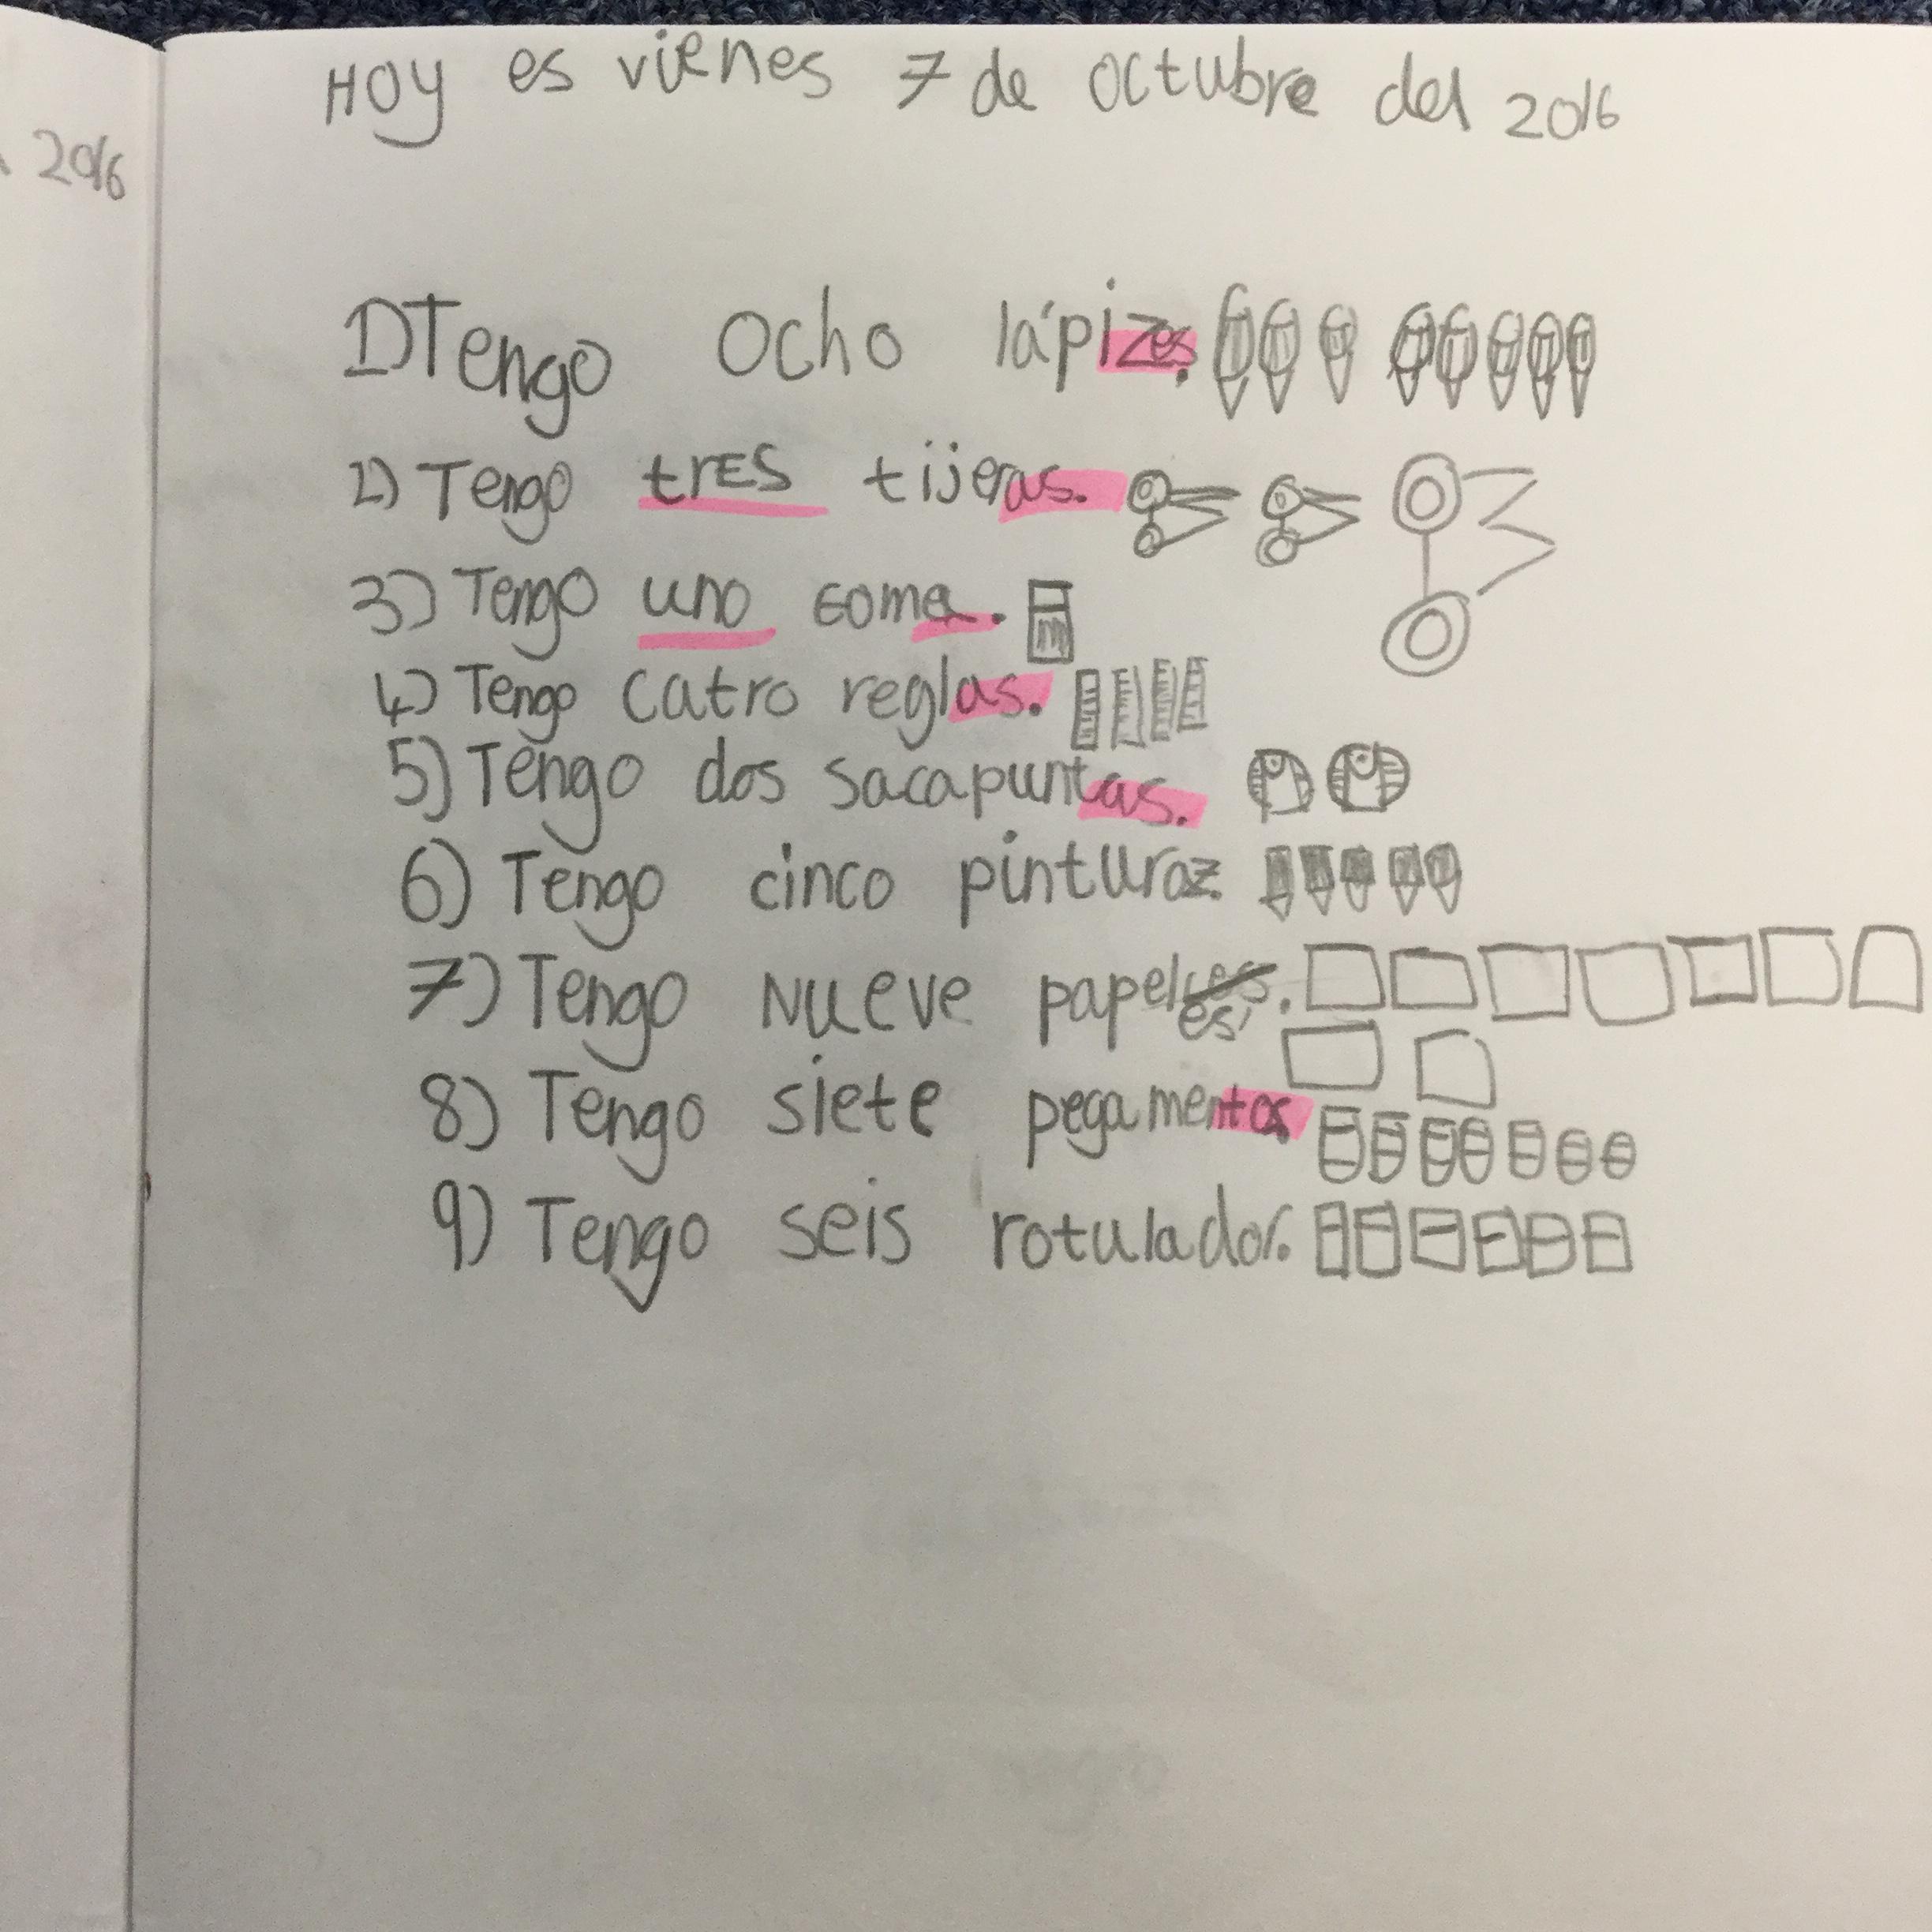 Hoy es vienes 7 de octubre del 2016
2016
1) Tengo ocho lápizes.
2) Tengo tres tijeras.
3) Tengo uno goma.
4) Tengo catro reglas.
5) Tengo dos sacapuntas.
6) Tengo cinco pinturaz.
7) Tengo nueve papeles.
8) Tengo siete pegamentos
9) Tengo seis rotulador.